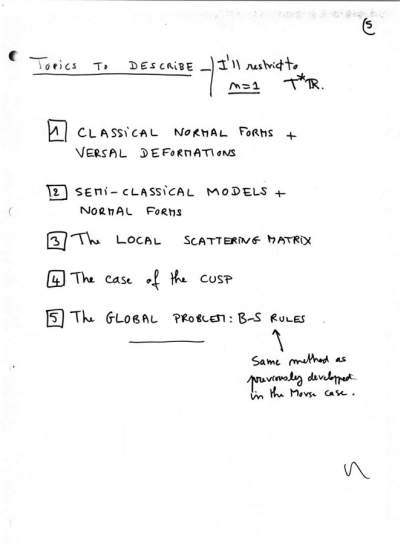 5
TOPICS TO DESCRIBE — I'll restrict to
n=1 T*ℝ.
1 CLASSICAL NORMAL FORMS +
VERSAL DEFORMATIONS
2 SEMI-CLASSICAL MODELS +
NORMAL FORMS
3 The LOCAL SCATTERING MATRIX
4 The case of the CUSP
5 The GLOBAL PROBLEM: B-S RULES
Same method as
previously developped
in the Morse case.